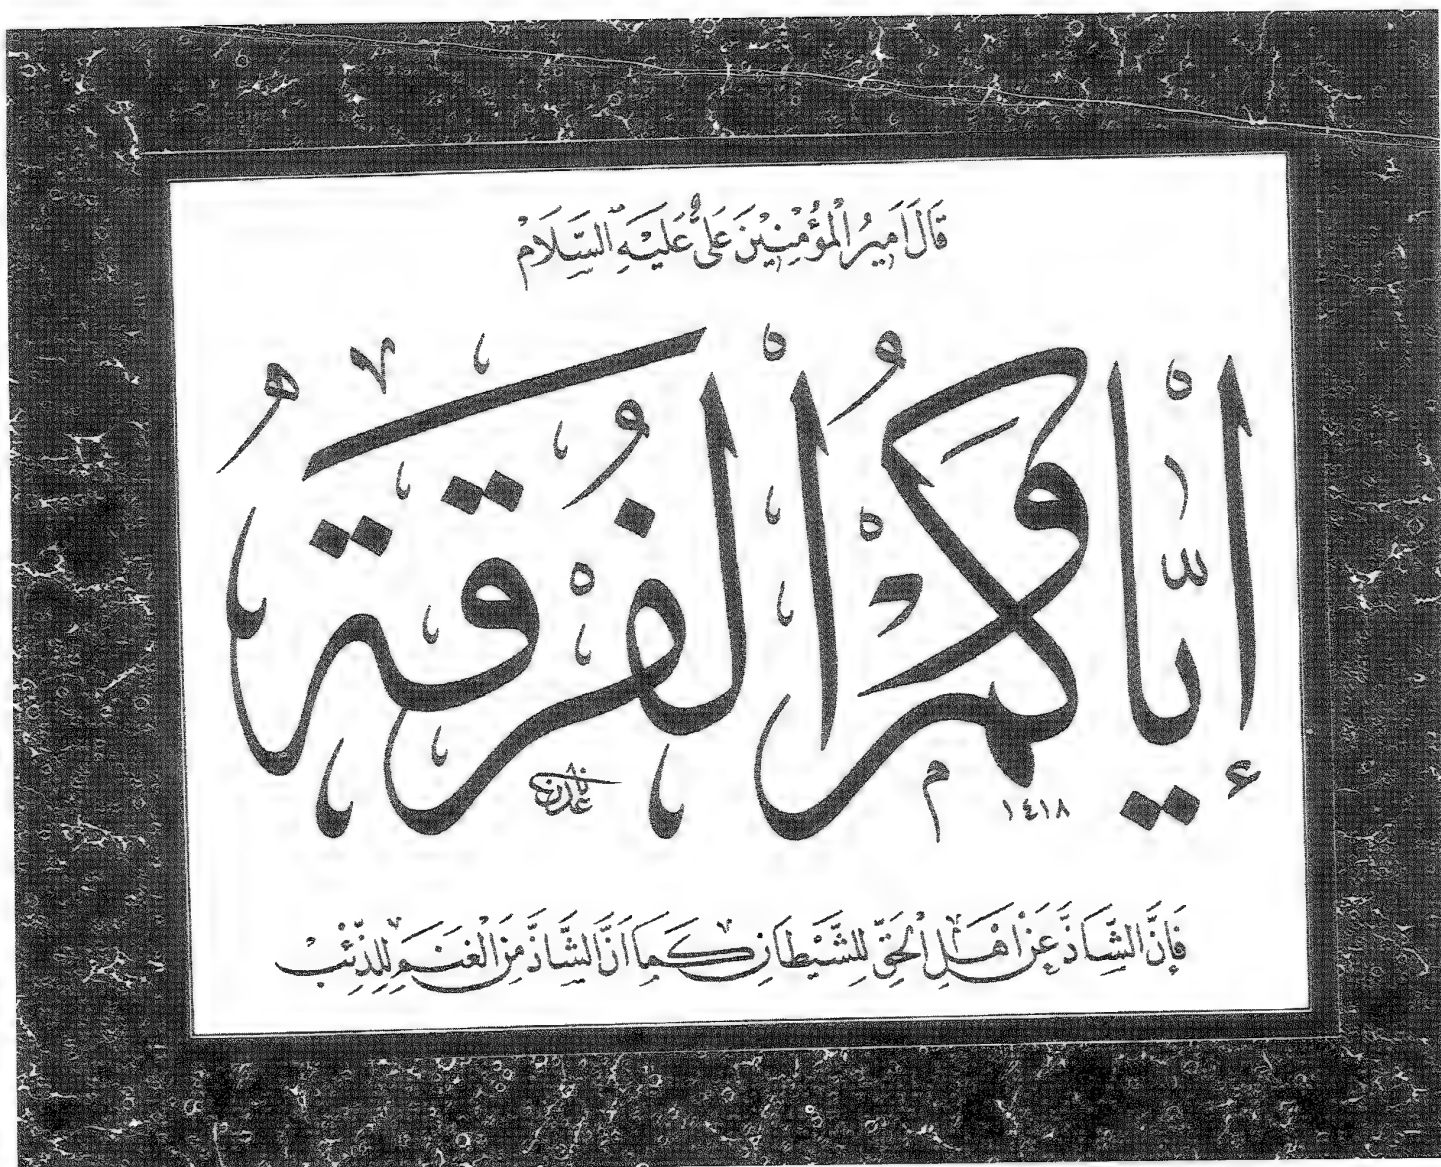 قَالَ اَمِيرُ الْمُؤْمِنِيْنَ عَلِيٌّ عَلَيْهِ السَّلَامْ
إيّاكم والفرقة
١٤١٨
فَإِنَّ الشَّاذَّ عَنْ اَهْلِ الْحَقِّ لِلشَّيْطَانِ كَمَا اَنَّ الشَّاذَّ مِنَ الْغَنَمِ لِلذِّئْبْ